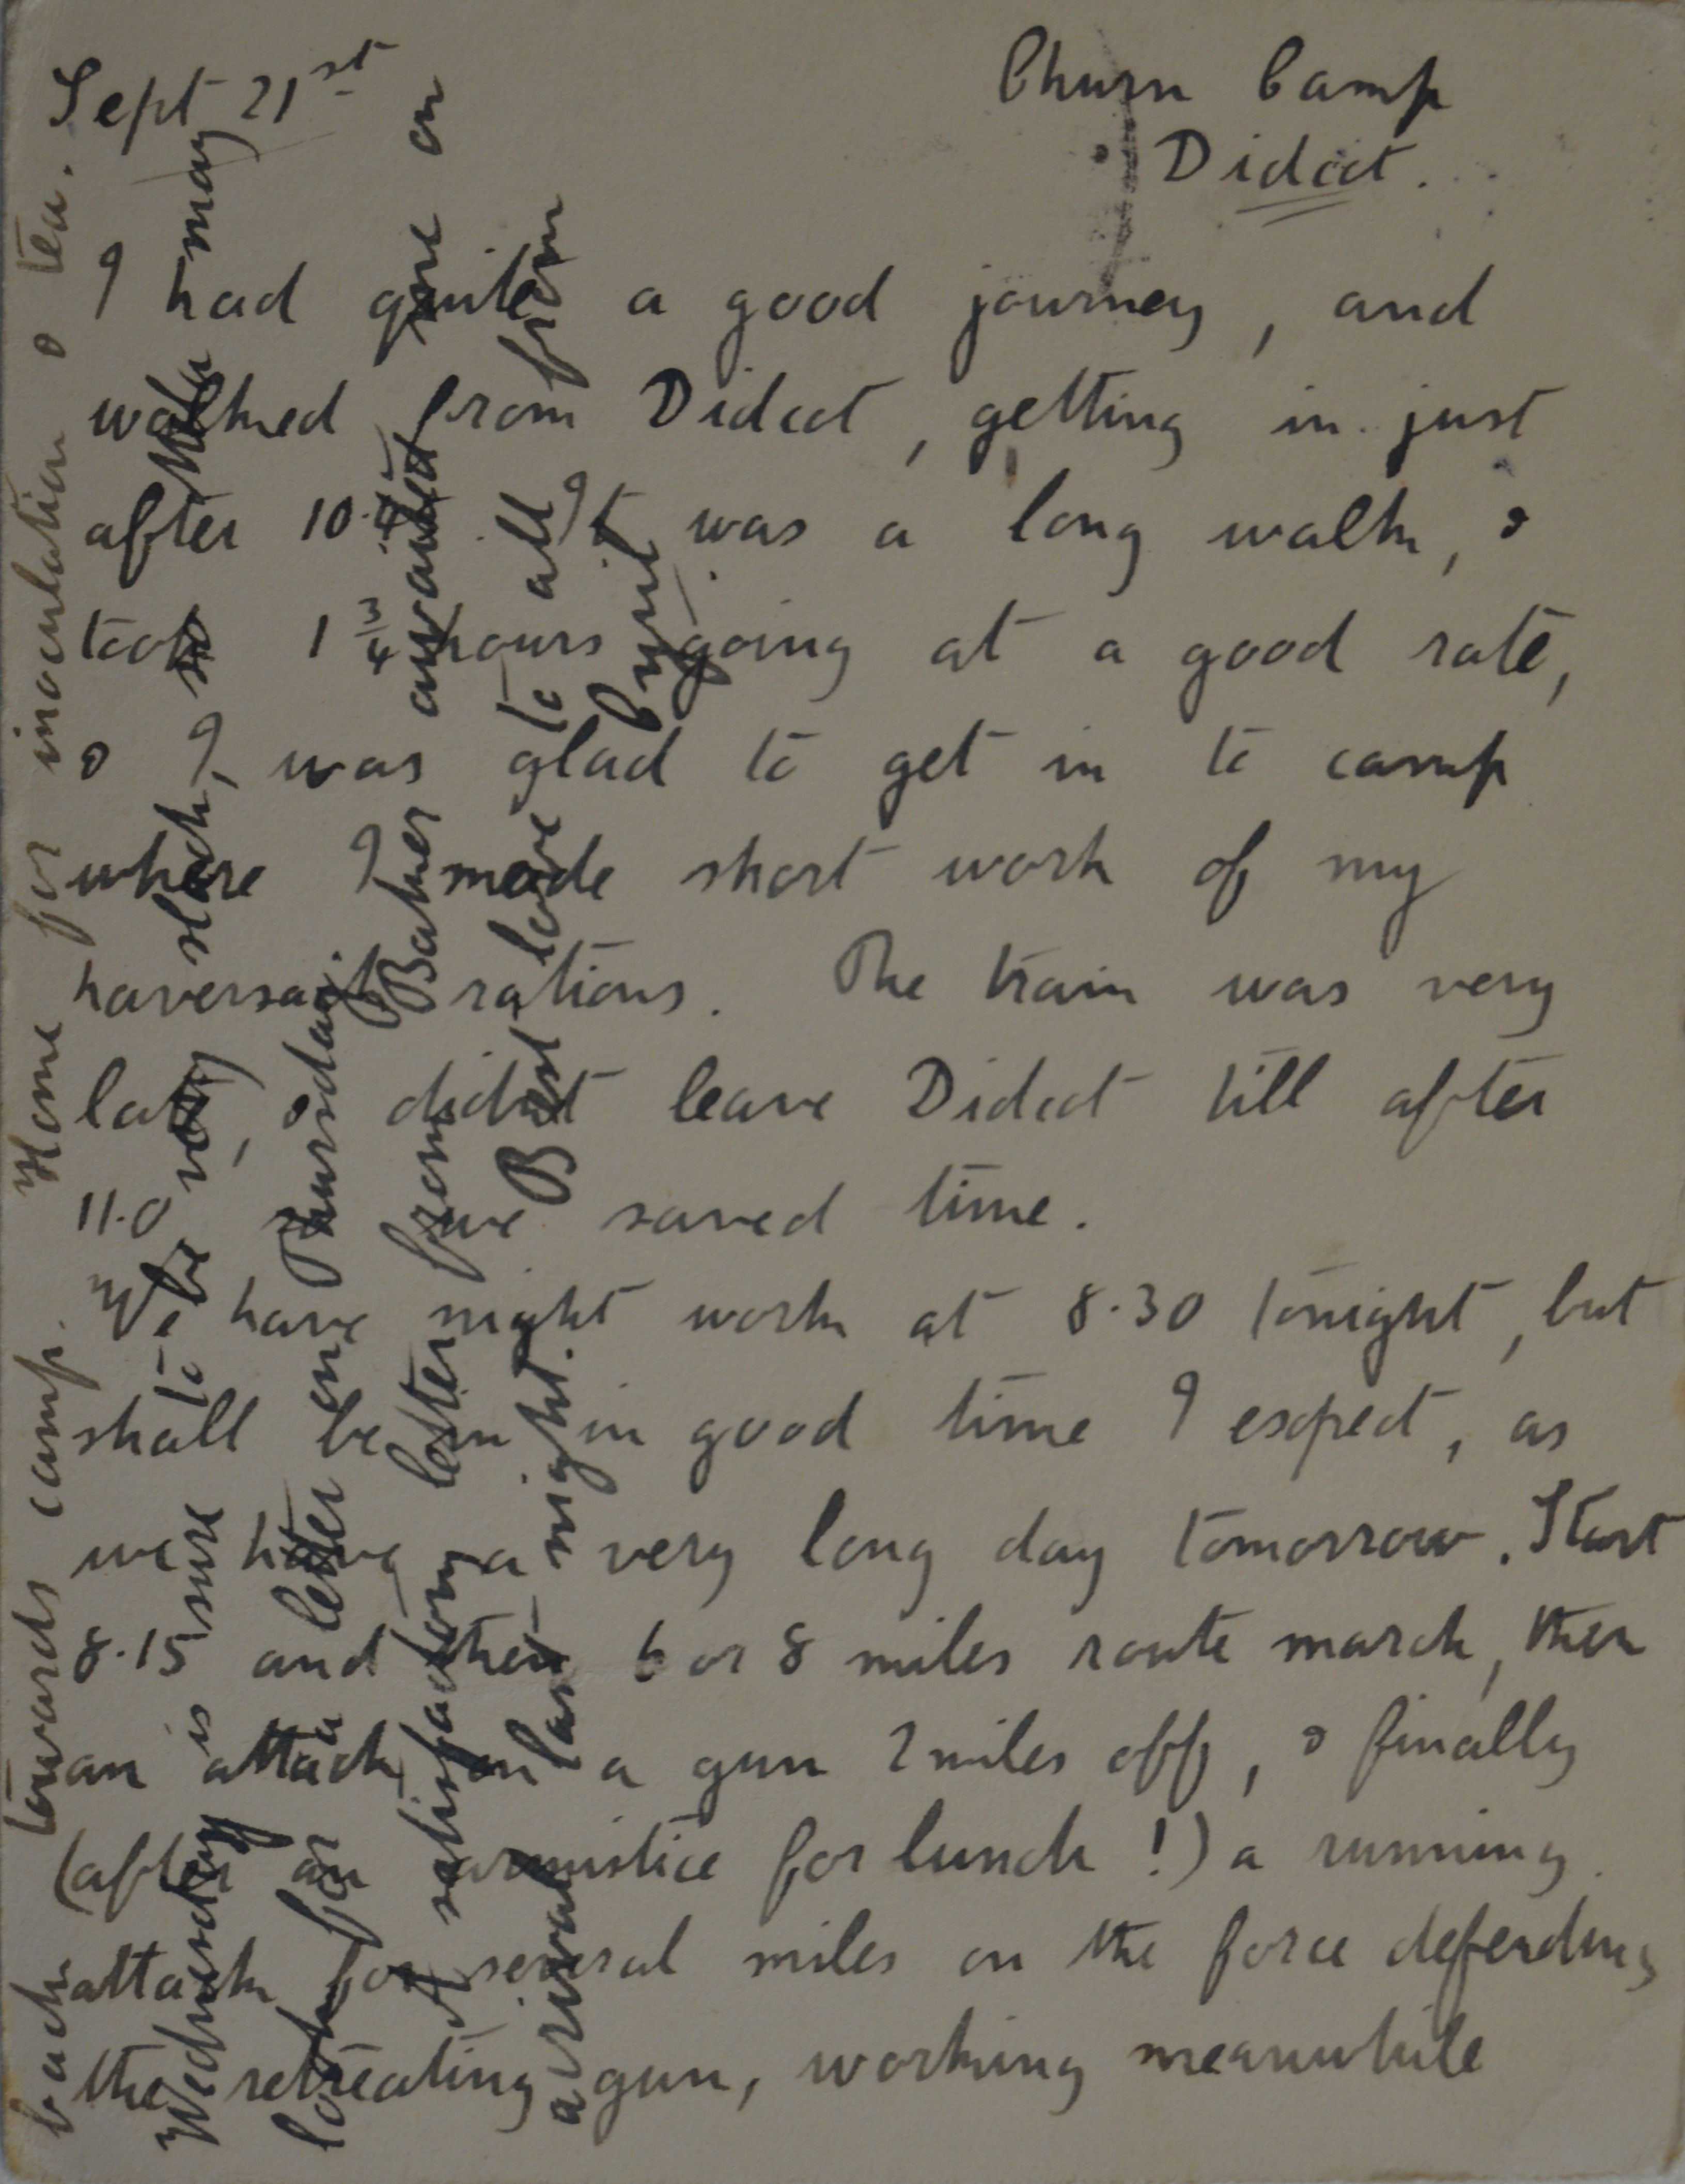 Sept 21st
Churn Camp
Didcot.
I had quite a good journey, and
walked from Didcot, getting in just
after 10. It was a long walk, &
took 1 3/4 hours going at a good rate,
& I was glad to get in to camp
where I made short work of my
haversack rations. The train was very
late, & didn't leave Didcot till after
11.0 so we saved time.
We have night work at 8.30 tonight, but
shall be in in good time I expect, as
we have a very long day tomorrow. Start
8.15 and then 6 or 8 miles route march, then
an attack on a gun 2 miles off, & finally
(after an armistice for lunch!) a running
attack for several miles on the force defending
the retreating gun, working meanwhile
back towards camp. Home for inoculation & tea.
Wednesday is sure to be very slack, so Mela may
look for a letter on Thursday.
A satisfactory letter from Baker awaited me on
arrival last night. Best love to all from
Cyril